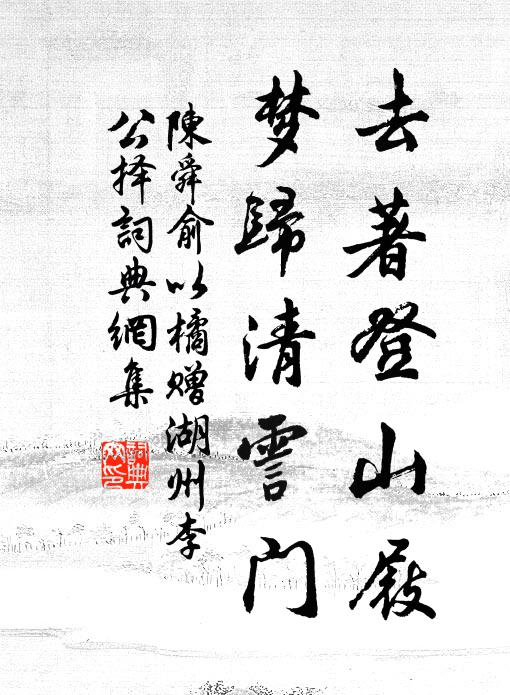 去著登山屐
梦歸清霅门
陳舜俞以橘赠湖州李
公择詞典網集
詞典网印